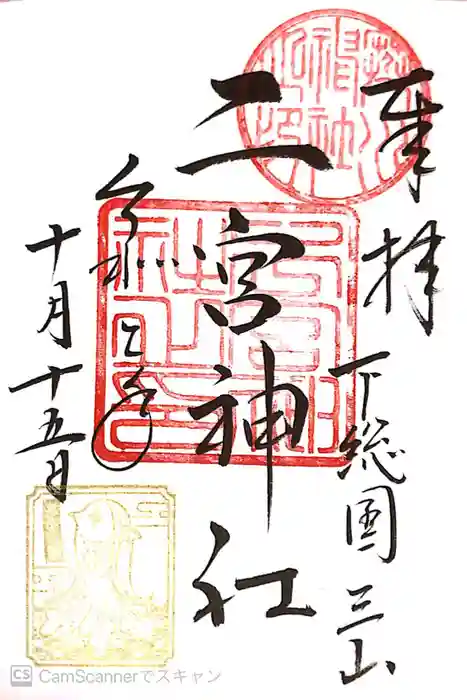 奉拝
下総国 三山
二宮神社
令和二年
十月十五日
CS CamScannerでスキャン